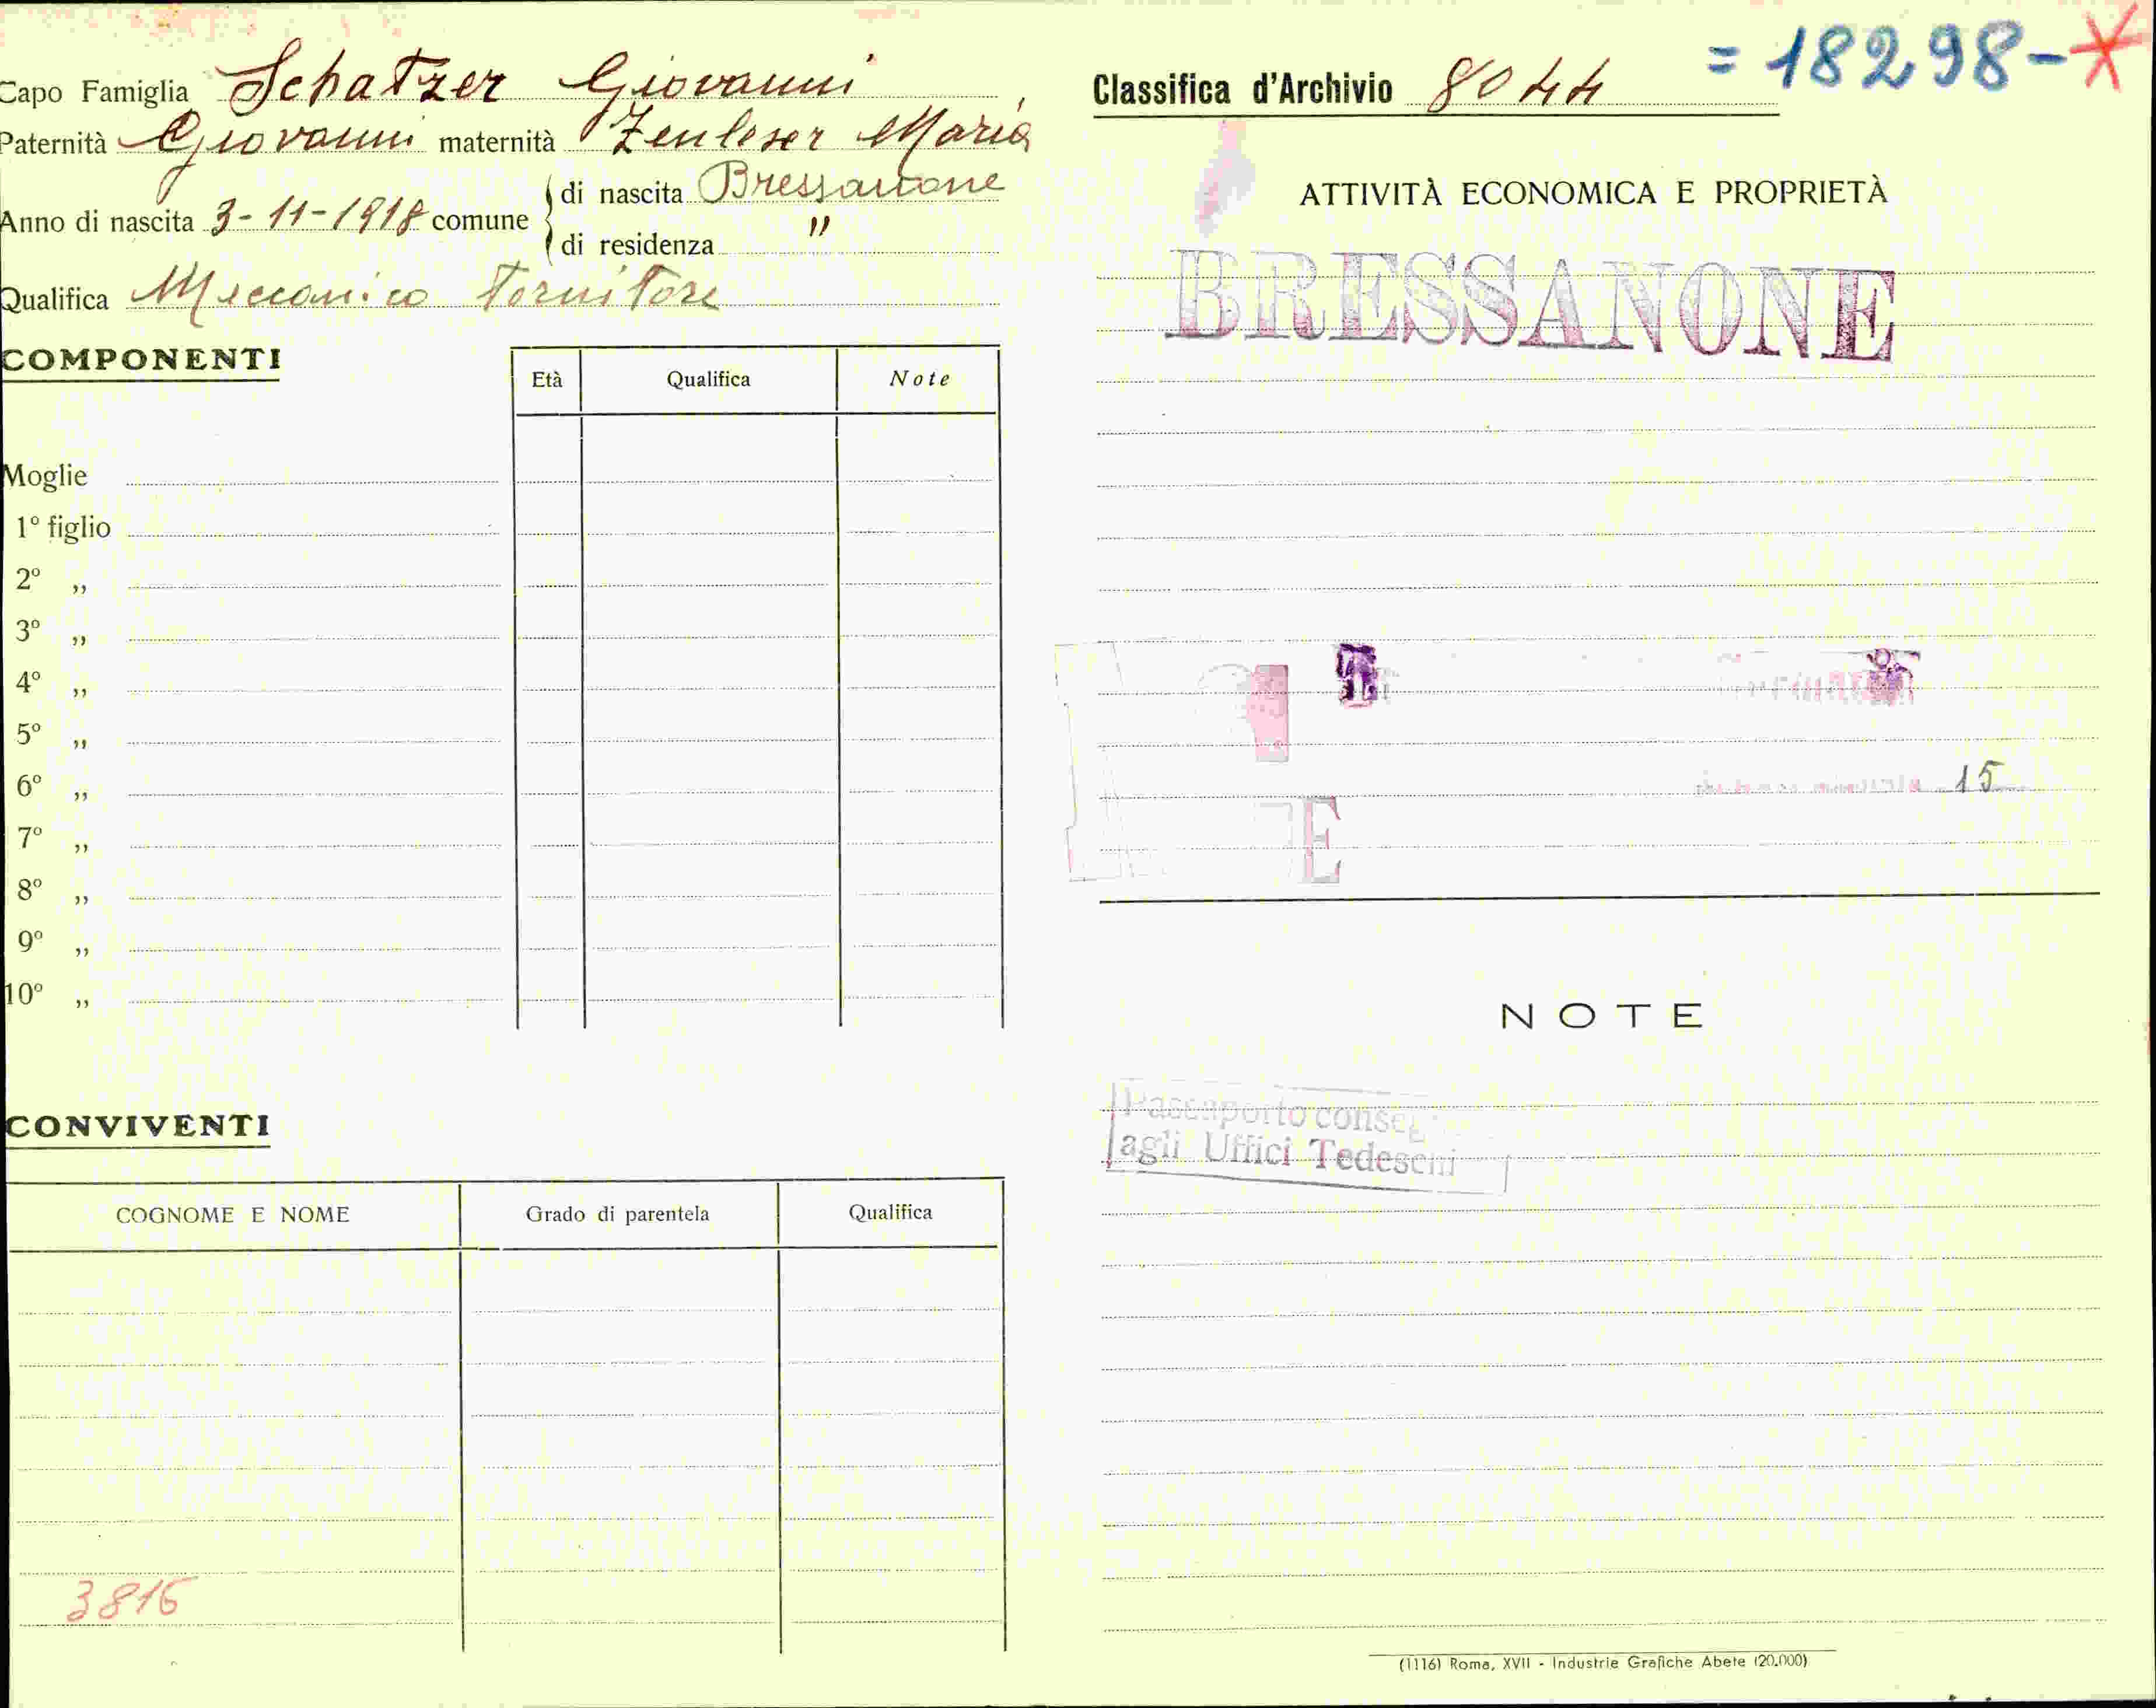 Capo Famiglia Schatzer Giovanni
Paternità Giovanni maternità Zenleser Maria
Anno di nascita 3-11-1918 comune di nascita Bressanone
di residenza "
Qualifica Meccanico Tornitore
COMPONENTI
Età Qualifica Note
Moglie
1º figlio
2º „
3º „
4º „
5º „
6º „
7º „
8º „
9º „
10º „
CONVIVENTI
COGNOME E NOME Grado di parentela Qualifica
3816
Classifica d'Archivio 8044 = 18298-X
ATTIVITÀ ECONOMICA E PROPRIETÀ
BRESSANONE
15
E
NOTE
Passaporto
agli Uffici Tedeschi
(1116) Roma, XVII - Industrie Grafiche Abete (20.000)